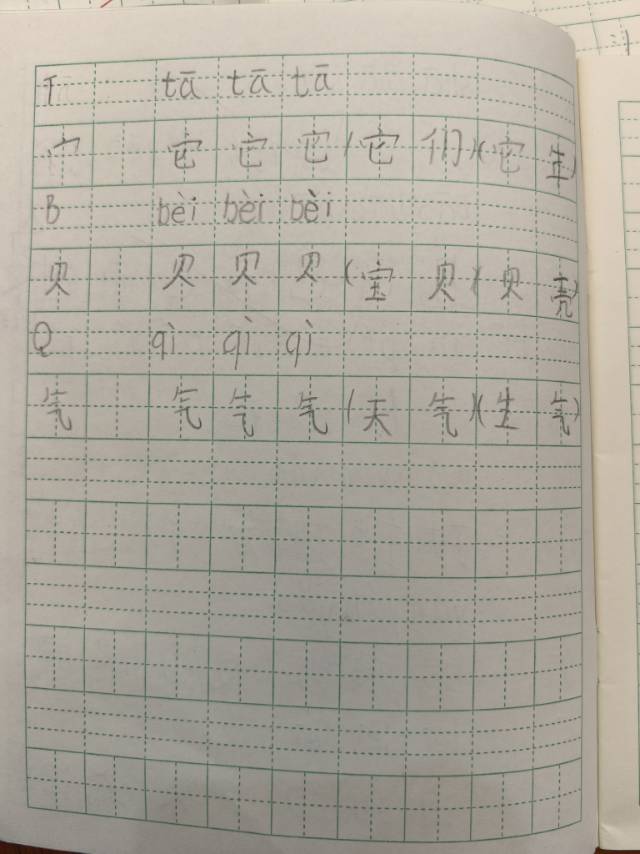 T tā tā tā
宀 它 它 它 (它 们)(它 年)
B bèi bèi bèi
贝 贝 贝 贝 (宝 贝)(贝 壳)
Q qì qì qì
气 气 气 气 (天 气)(生 气)